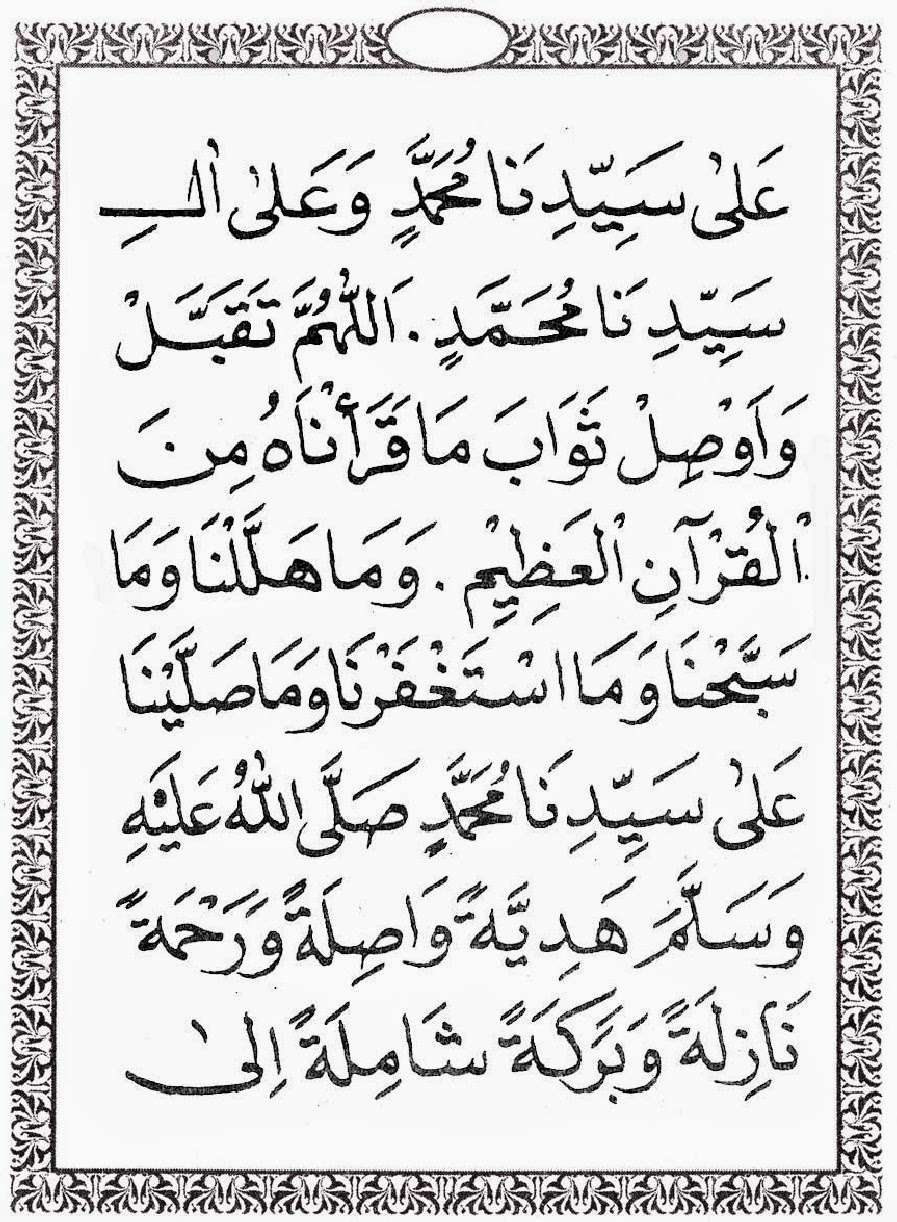 عَلٰى سَيِّدِنَا مُحَمَّدٍ وَعَلٰى اٰلِ
سَيِّدِنَا مُحَمَّدٍ. اَللّٰهُمَّ تَقَبَّلْ
وَاَوْصِلْ ثَوَابَ مَا قَرَأْنَاهُ مِنَ
الْقُرْآنِ الْعَظِيْمِ. وَمَا هَلَّلْنَا وَمَا
سَبَّحْنَا وَمَا اسْتَغْفَرْنَا وَمَا صَلَّيْنَا
عَلٰى سَيِّدِنَا مُحَمَّدٍ صَلَّى اللّٰهُ عَلَيْهِ
وَسَلَّمَ هَدِيَّةً وَاصِلَةً وَرَحْمَةً
نَازِلَةً وَبَرَكَةً شَامِلَةً اِلٰى